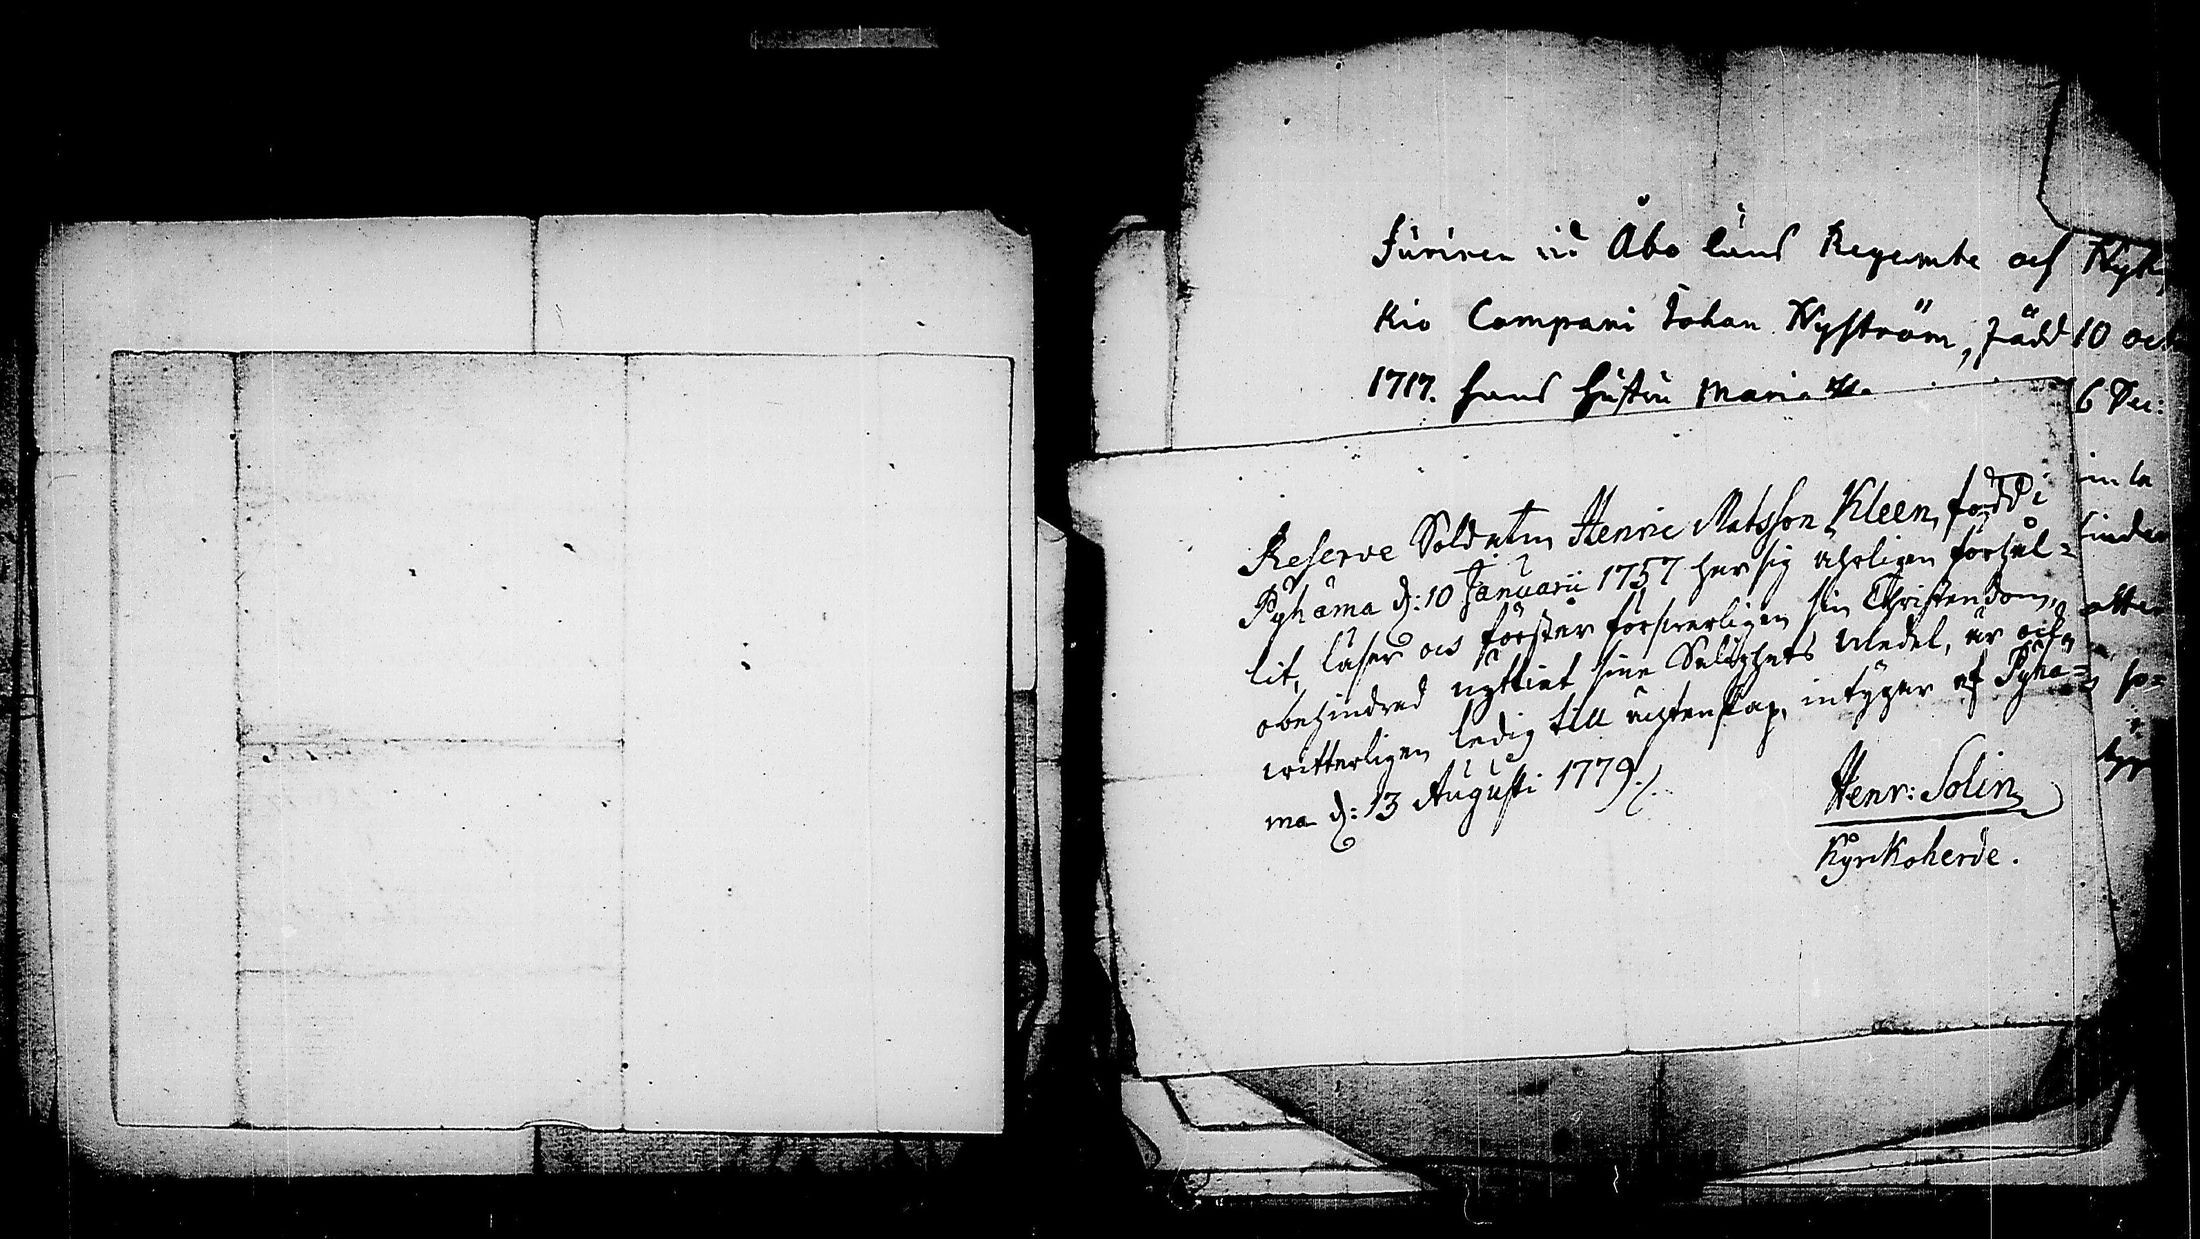 Furiren vid Åbo läns Regemente och Nyky
kio Compani Johan Nyström, född 10 octo
1717. hans hustru Maria
6 Dec:
Reserve Soldaten Henric Matsson Kleen, född i
Pyhäma d: 10 Januarii 1757 har sig ährligen förhål-
lit, läser och förstår försvarligen sin Christendom,
obehindrad nyttiat sina Salighets Medel, är och
witterligen ledig till ägtenskap, intygar af Pyhä-
ma d: 13 Augusti 1779
Henr: Solin
Kyrckoherde.